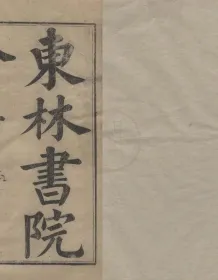 東林書院